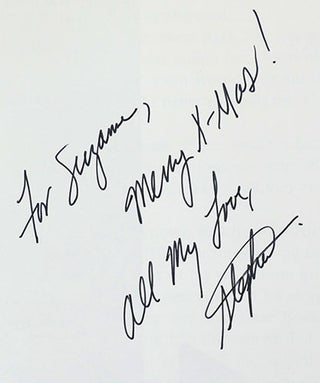 For Suzanne,
Merry X-Mas!
All My Love,
Stephen